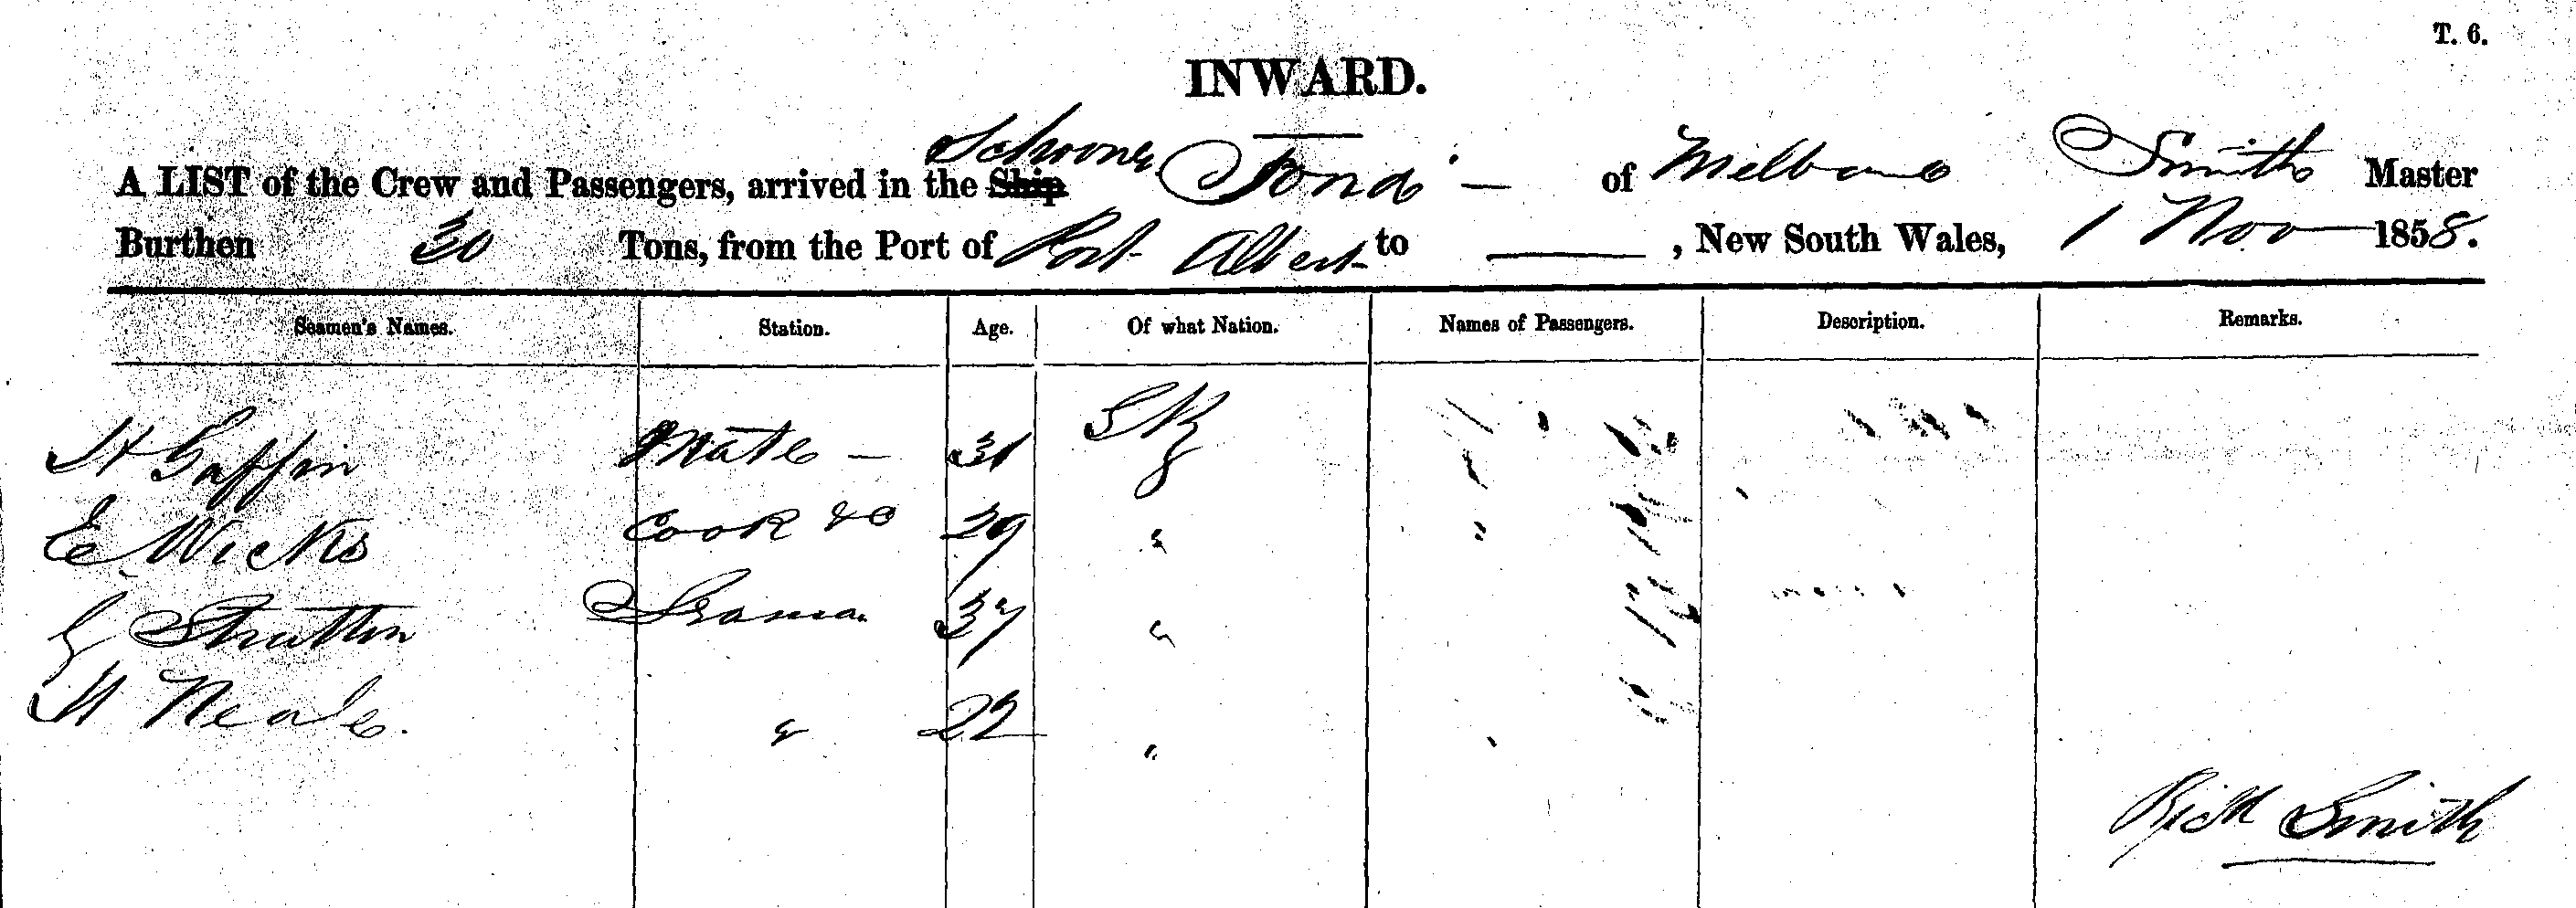 T. 6.
INWARD.
A LIST of the Crew and Passengers, arrived in the Ship Schooner of Melbourne Smith Master
Burthen 30 Tons, from the Port of Port Albert to , New South Wales, 1 Nov 1858.
Seamen's Names. Station. Age. Of what Nation. Names of Passengers. Description. Remarks.
Mate 31
E Wicks Cook &c 29 "
Strutton Seaman 37 "
Neale " 22 "
Richd Smith